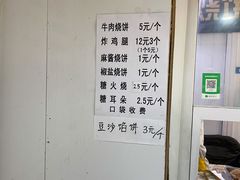 牛肉烧饼 5元/个
炸鸡腿 12元3个
(1个5元)
麻酱烧饼 1元/个
椒盐烧饼 1元/个
糖火烧 2.5元/个
糖耳朵 2.5元/个
口袋收费
豆沙馅饼 3元/个